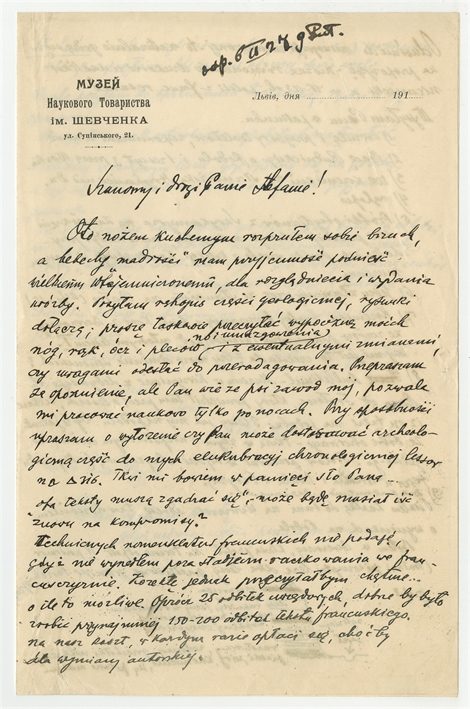 odp. 6 II 27 g
МУЗЕЙ
Наукового Товариства
ім. ШЕВЧЕНКА
ул. Супінського, 21.
Львів, дня 191
Szanowny i drogi Panie Stefanie!
Oto nożem kuchennym rozprułem sobie brzuch,
a bebechy mam przyjemność podnieść
wielkiemu dla rozglądnięcia i wydania
wróżby. Posyłam rękopis części geologicznej, rysunki
dołączę; proszę łaskawie przeczytać wypociny moich
nóg, rąk, ócz i pleców i z ewentualnymi zmianami,
czy uwagami odesłać do przeredagowania. Przepraszam
za opóźnienie, ale Pan wie że psi zawód mój, pozwala
mi pracować naukowo tylko po nocach. Przy sposobności
upraszam o czy Pan może dostosować archeolo-
giczną część do mych elukubracyj chronologicznej lessów
na Tkwi mi bowiem w pamięci sto Pana...
"oba teksty muszą zgadzać się", może będę musiał iść
"znowu na kompromisy?"
Technicznych nomenklatur francuskich nie podaję,
gdyż nie wyszedłem poza stadjum rankowania we fran-
cuszczyźnie. Korektę jednak przeczytałbym chętnie...
o ile to możliwe. Oprócz 25 odbitek urzędowych dobrze by było
zrobić przynajmniej 150-200 odbitek tekstu francuskiego.
na nasz koszt, w każdym razie opłaci się, choćby
dla wymiany autorskiej.